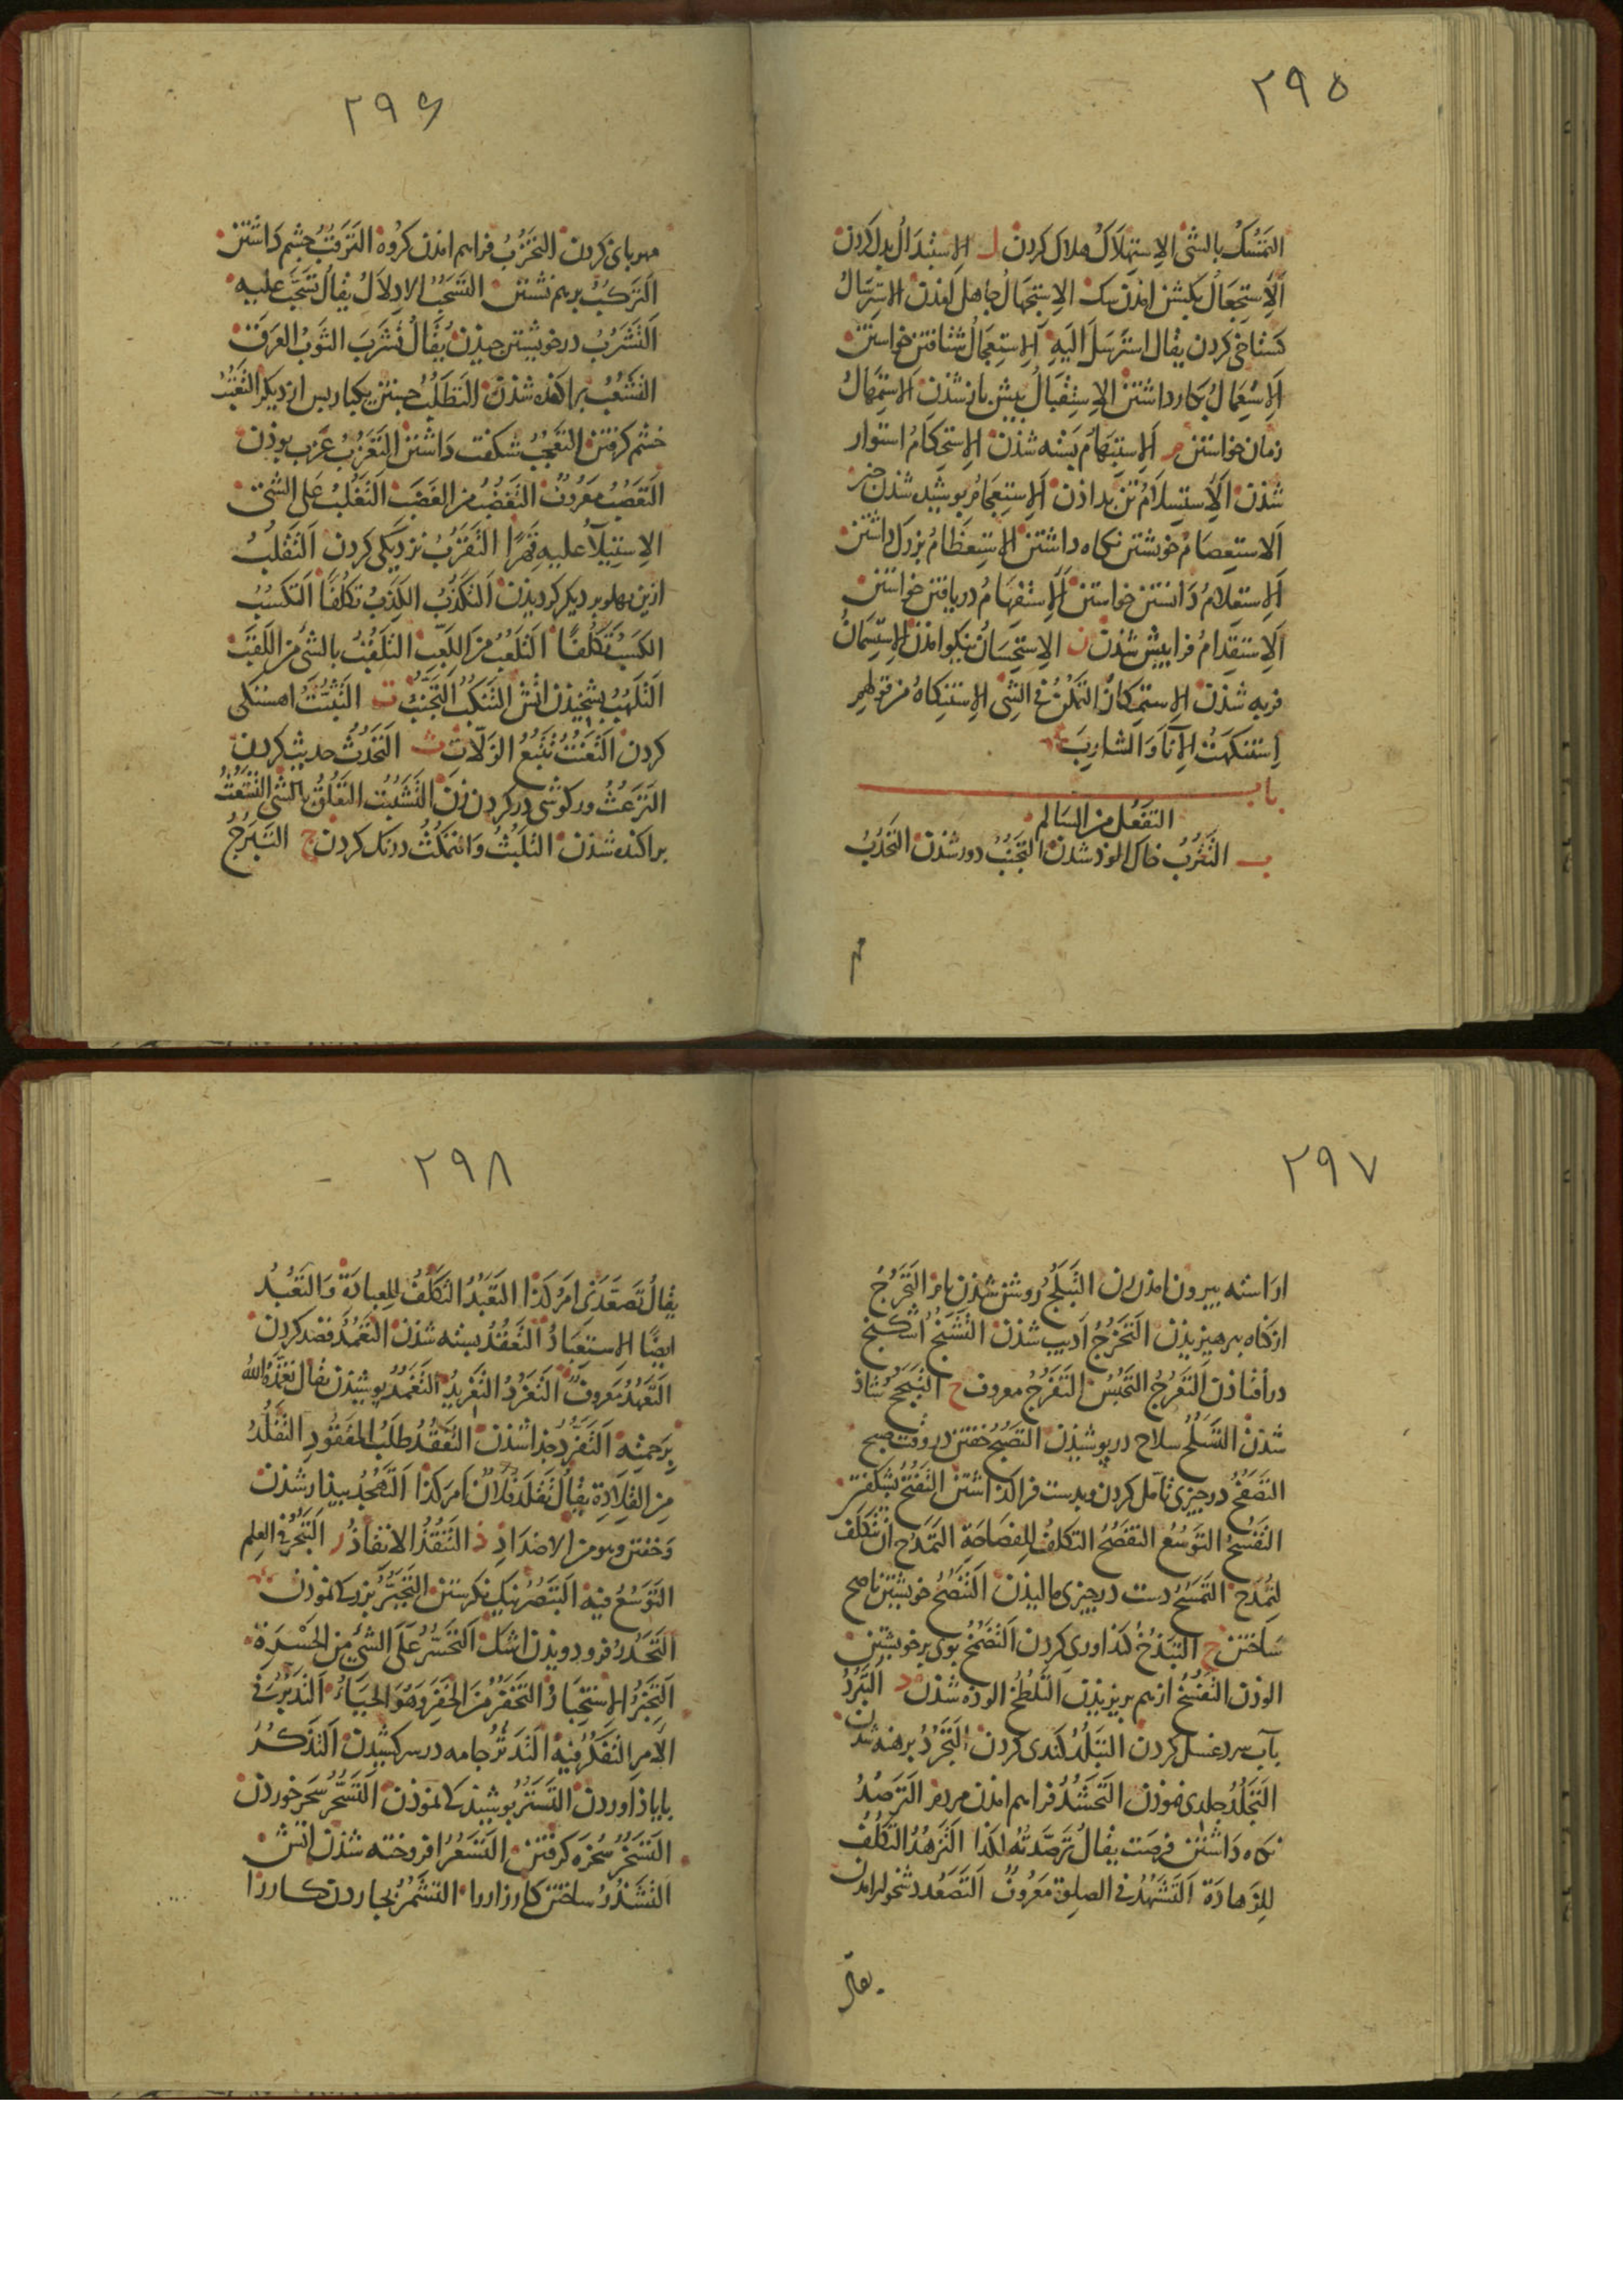 ٢٩٥
التمسك بالشئ الاستهلاك هلاك كردن ل الاستبدال بدل كردن
الاستجعال بكشن امذن سك الاستجهال جاهل امذن الاسترسال
كستاخى كردن يقال استرسل اليه الاستعجال شتافتن خواستن
الاستعمال بكار داشتن الاستقبال پيش باز شذن الاستمهال
زمان خواستن م الاستبهام بسته شذن الاستحكام استوار
شذن الاستسلام تن بداذن الاستعجام پوشيده شذن خبر
الاستعصام خويشتن نكاه داشتن الاستعظام بزرك داشتن
الاستعلام دانستن خواستن الاستفهام دريافتن خواستن
الاستقدام فرا پيش شذن ن الاستحسان نيكو امذن الاستسمان
فربه شذن الاستمكان التمكن فى الشئ الاستنكاه من قولهم
استنكهت الشارب
باب
التفعل من السالم
ب التترب خاك الوذ شدن التجنب دور شذن التحدب
مهر
٢٩۶
مهربانى كردن التحزب فراهم امذن كروه الترقب چشم داشتن
التركب برهم نشستن التسحب الادلال يقال تسحب عليه
التشرب در خويشتن چيذن يقال تشرب الثوب العرق
التشعب پراكنده شذن التطلب جستن يكبار پس از ديكر التعتب
خشم كرفتن التعجب شكفت داشتن التعزب عزب بوذن
التعصب معروف التغضب من الغضب التغلب على الشئ
الاستيلا عليه قهرا التقرب نزديكى كردن التقلب
ازين پهلو بر ديكر كرديذن التكذب الكذب تكلفا التكسب
الكسب تكلفا التلعب من اللعب التلقب بالشئ من اللقب
التلهب اتش التنكب التجنب ت التثبت اهستكى
كردن التعنت تتبع الزلات ث التحدث حديث كردن
الترعث وركوشى در كردن زن التشبث التعلق بالشئ التشعث
پراكنده شذن التلبث والتمكث درنك كردن ج التبرج
٢٩٧
اراسته بيرون امذن زن التبلج روشن شذن بامز التحرج
از كناه پرهيزيذن التخرج اديب شذن التشنج اشكنج
در افتاذن التعرج التحبس التفرج معروف ح التبجح شاذ
شذن التسلح سلاح در پوشيذن التصبح خفتن در وقت صبح
التصفح در چيزى تامل كردن وبدست فرا كذاشتن التفتح بشكفتن
التفسح التوسع التفصح التكلف للفصاحة التمدح ان تتكلف
لتمدح التمسح دست در چيزى ماليذن التنصح خويشتن ناصح
ساختن خ التبذخ كنداورى كردن التضمخ بوى بر خويشتن
الوذن التفسخ از هم بريزيذن التلطخ الوده شذن د التبرد
بآب سرد غسل كردن التبلد كندى كردن التجرد برهنه شدن
التجلد جلدى نموذن التحشد فراهم امذن مردم الترصد
نكاه داشتن فرصت يقال ترصدته لكذا التزهد التكلف
للزهادة التشهد فى الصلوة معروف التصعد دشخوار امدن
يقال
٢٩٨
يقال تصعدنى امر كذا التعبد التكلف للعبادة والتعبد
ايضا الاستعباد التعقد بسته شذن التعمد قصد كردن
التعهد معروف التغرد التغريد التغمد پوشيذن يقال تغمده الله
برحمته التفرد جذا شذن التفقد طلب المفقود التقلد
من القلادة يقال تقلد فلان امر كذا التهجد بيذار شذن
وخفتن وهو من الاضداد ذ التنفذ الانفاذ ر التبحر فى العلم
التوسع فيه التبصر نيك نكرستن التجبر بزركى نموذن
التحدر فرو دويذن اشك التحسر على الشئ من الحسرة
التحير الاستحيار التخفر من الخفر وهو الحياء التدبر فى
الامر التفكر فيه التدثر جامه در سر كشيدن التذكر
با ياذ اوردن التستر پوشيذكى نموذن التسحر سحر خوردن
التسخر سخره كرفتن التسعر افروخته شذن اتش
التشذر ساختن كارزار را التشمر بجاردن كار را